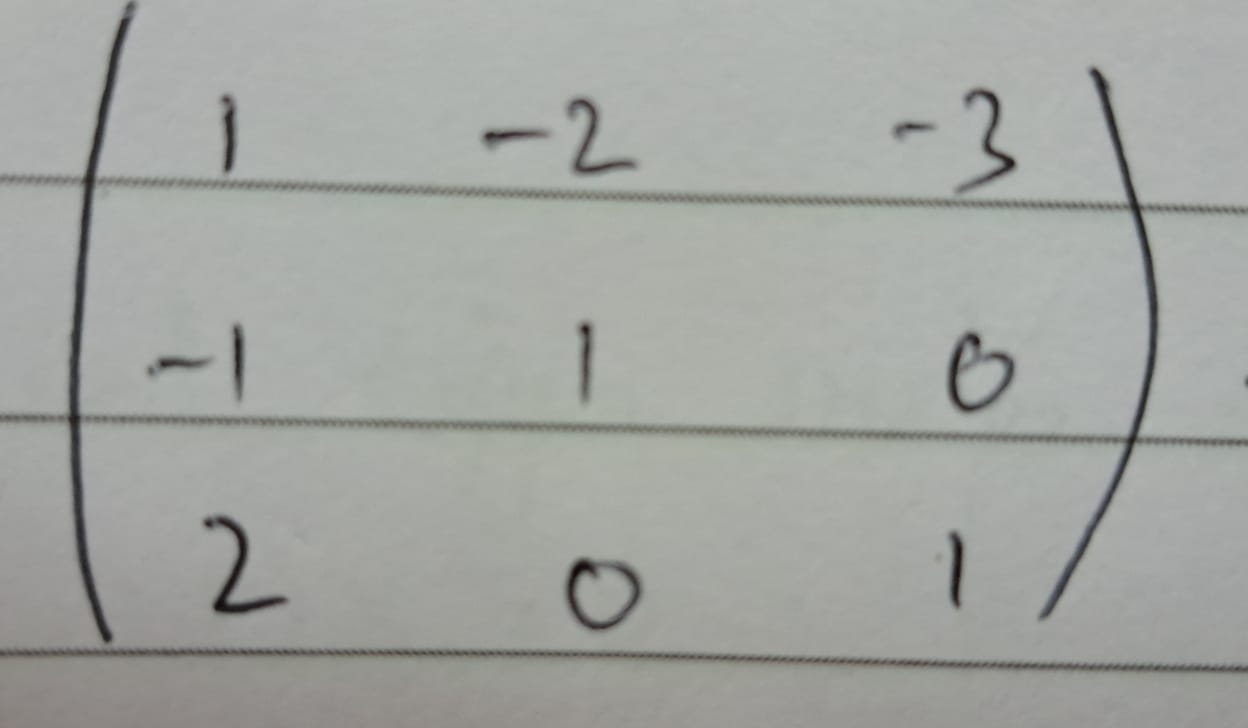 1 -2 -3
-1 1 0
2 0 1